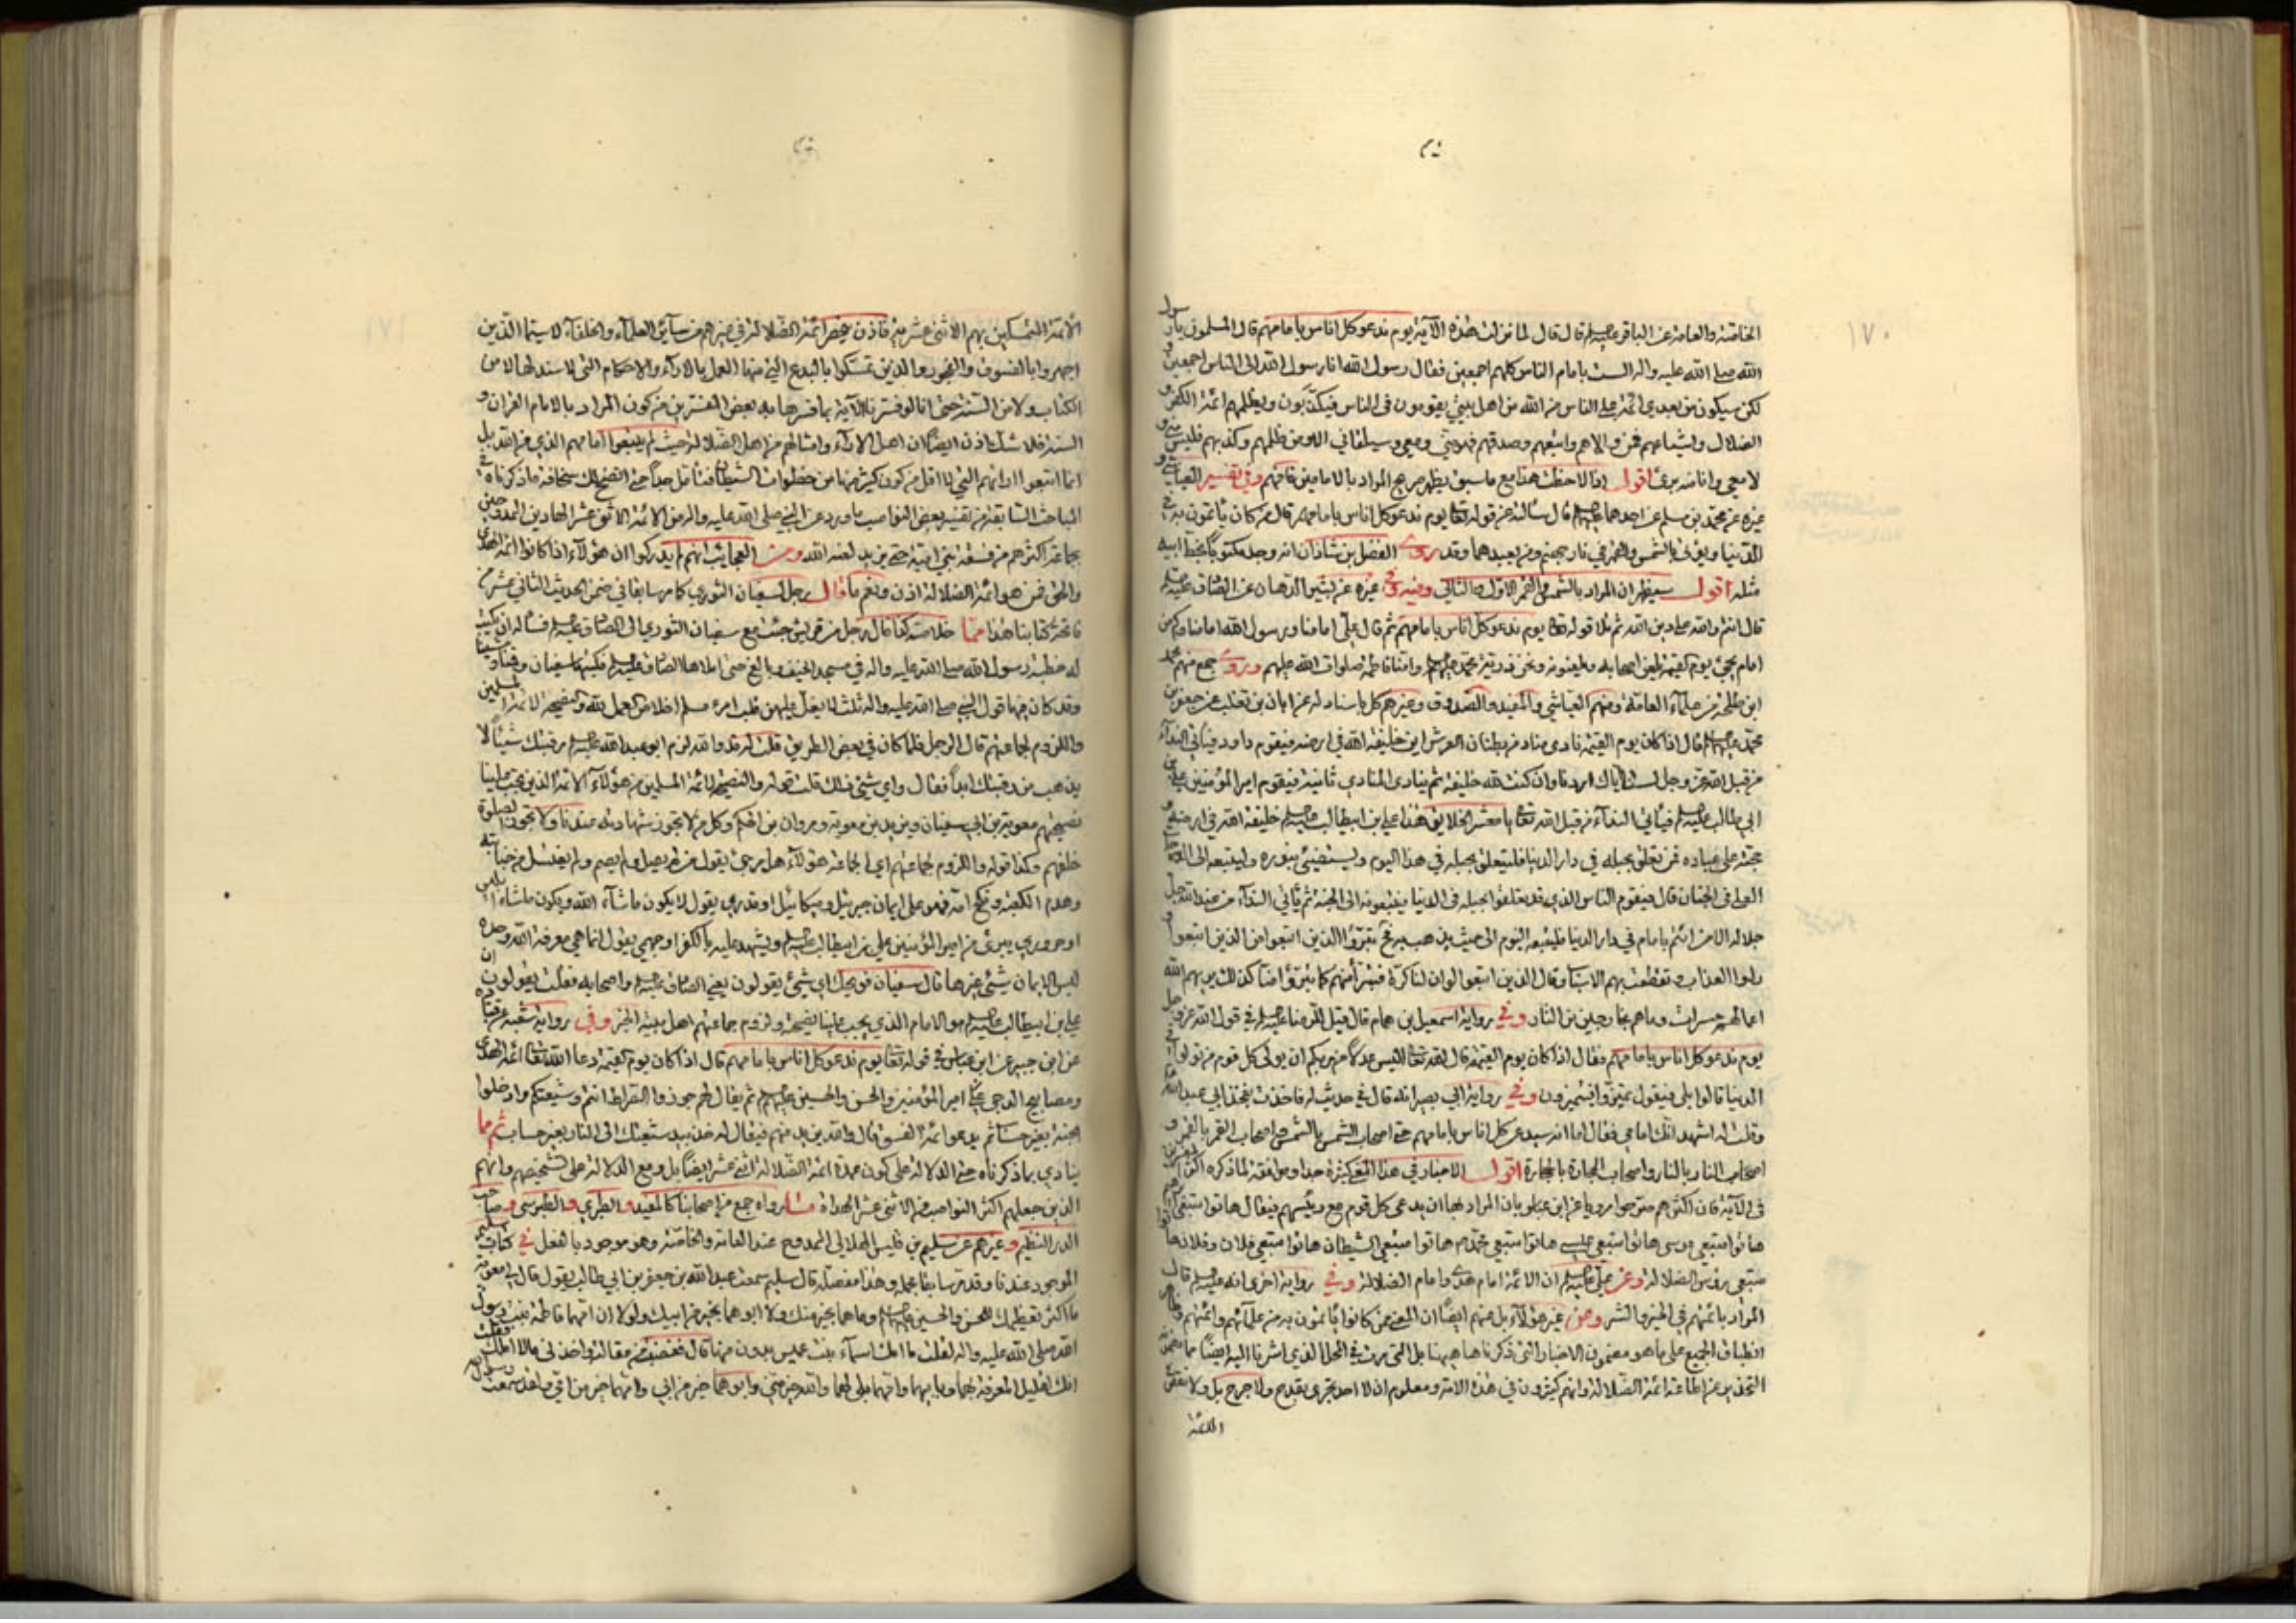 ١٧٠
الخاصة والعامة عن الباقر عليه السلم قال قال لما نزلت هذه الآية يوم ندعو كل اناس بامامهم قال المسلمون يا رسول
الله صلى الله عليه واله الست بامام الناس كلهم اجمعين فقال رسول الله انا رسول الله الى الناس اجمعين و
لكن سيكون من بعدي ائمة على الناس من الله من اهل بيتي يقومون في الناس فيكذبون ويظلمهم ائمة الكفر و
الضلال واشياعهم فمن والاهم واتبعهم وصدقهم فهو مني ومعي وسيلقاني الا ومن ظلمهم وكذبهم فليس مني و
لا معي وانا منه برئ اقول اذا لاحظت هذا مع ما سبق يظهر المراد بالامامين فافهم وفي تفسير العياشي و
غيره عن محمد بن مسلم عن احدهما عليهما السلم قال سألته عن قوله تعالى يوم ندعو كل اناس بامامهم قال من كان يأتمون به في
الدنيا ويؤتى بالشمس والقمر في نار جهنم ومن يعبدهما وقد روى الفضل بن شاذان انه وجد مكتوبا بخط ابيه
مثله اقول سيظهر ان المراد بالشمس والقمر الاول والثاني وفيه وفي غيره عن بشير الدهان عن الصادق عليه السلم
قال انتم والله على دين الله ثم تلا قوله تعالى يوم ندعو كل اناس بامامهم ثم قال علي امامنا ورسول الله امامنا وكم من
امام يجئ يوم القيمة يلعن اصحابه ويلعنونه ونحن ذرية محمد وامنا فاطمة صلوات الله عليهم وروى جمع منهم محمد
ابن طلحة من علماء العامة ومنهم العياشي والمفيد والصدوق وغيرهم كل باسناد له عن ابان بن تغلب عن جعفر بن
محمد عليهما السلم قال اذا كان يوم القيمة نادى مناد من بطنان العرش اين خليفة الله في ارضه فيقوم داود فيأتي النداء
من قبل الله عز وجل لسنا اياك اردنا وان كنت لله خليفة ثم ينادي المنادي ثانية فيقوم امير المؤمنين علي بن
ابي طالب عليه السلم فيأتي النداء من قبل الله تعالى يا معشر الخلايق هذا علي بن ابيطالب عليه السلم خليفة الله في ارضه و
حجته على عباده فمن تعلق بحبله في دار الدنيا فليتعلق بحبله في هذا اليوم وليستضيئ بنوره وليتبعه الى الدرجات
العلى في الجنان قال فيقوم الناس الذي قد تعلقوا بحبله في الدنيا فيتبعونه الى الجنة ثم يأتي النداء من عند الله جل
جلاله الا من ائتم بامام في دار الدنيا فليتبعه اليوم الى حيث يذهب به فح تبرؤا الذين اتبعوا من الذين اتبعوا و
راوا العذاب وتقطعت بهم الاسباب وقال الذين اتبعوا لو ان لنا كرة فنتبرأ منهم كما تبرؤا منا كذلك يريهم الله
اعمالهم حسرات وما هم بخارجين من النار وفي رواية اسمعيل بن همام قال قيل للرضا عليه السلم في قول الله عز وجل
يوم ندعو كل اناس بامامهم فقال اذا كان يوم القيمة قال الله تعالى اليس عدلا من ربكم ان يولى كل قوم من تولوا في
الدنيا قالوا بلى فيقول تميزوا فيتميزون وفي رواية ابي بصير انه قال في حديث له فاخذت بفخذ ابي عبد الله
وقلت له اشهد انك امامي فقال اما انه سيدعى كل اناس بامامهم حتى اصحاب الشمس بالشمس واصحاب القمر بالقمر و
اصحاب النار بالنار واصحاب الحجارة بالحجارة اقول الاخبار في هذا المعنى كثيرة جدا وموافقة لما ذكره اكثر المفسرين
في الآية فان اكثرهم صرحوا مرويا عن ابن عباس بان المراد بها ان يدعى كل قوم مع رئيسهم فيقال هاتوا متبعي ابرهيم
هاتوا متبعي موسى هاتوا متبعي عيسى هاتوا متبعي محمد ص هاتوا متبعي الشيطان هاتوا متبعي فلان وفلان هاتوا
متبعي رؤس الضلالة وعن علي عليه السلم ان الائمة امام هدى وامام الضلالة وفي رواية اخرى انه عليه السلم قال
المراد بائمتهم في الخير والشر وعن غير هؤلاء بل عنهم ايضا ان المعنى من كانوا يأتمون به من علمائهم وائمتهم وظاهر
انطباق الجميع على ما هو مضمون الاخبار التي ذكرناها هيهنا بل التي مرت في المحل الذي اشرنا اليه ايضا مما تضمنه
التحذير عن اطاعة ائمة الضلالة وانهم كثيرون في هذه الامة ومعلوم ان لا احد يجتري بقدح ولا جرح بل ولا نقص
الائمة
الأئمة المتمسكين بهم الاثنى عشرية فاذن يحصر ائمة الضلالة في غيرهم من سائر العلماء والخلفاء لا سيما الذين
اجهروا بالفسوق والفجور والذين تمسكوا بالبدع التي منها العمل بالاراء والاحكام التي لا سند لها لا من
الكتاب ولا من السنة حتى انا لو فسرنا الآية بما فسرها به بعض المفسرين من كون المراد بالامام القران و
السنة فلا شك اذن ايضا ان اهل الاراء وامثالهم من اهل الضلالة حيث لم يتبعوا امامهم الذي من الله بل
انما اتبعوا اراءهم التي لا اقل من كون كثير منها من خطوات الشيطان فتأمل جدا حتى اتضح لك سخافة ما ذكرناه في
المباحث السابقة من تفسير بعض النواصب ما ورد عن النبي صلى الله عليه واله من الائمة الاثنى عشر الهادين المهديين
بجماعة اكثرهم من فسقة بني امية حتى يزيد لعنه الله ومن العجائب انهم لم يدركوا ان هؤلاء اذا كانوا ائمة الهدى
والحق فمن هو ائمة الضلالة اذن ونعم ما قال رجل لسفيان الثوري كما مر سابقا في ضمن الحديث الثاني عشر من
فاتحة كتابنا هذا مما خلاصته كذا قال رجل من قريش جئت مع سفيان الثوري الى الصادق عليه السلم فسأله ان يكتب
له خطبة رسول الله صلى الله عليه واله في مسجد الخيف وبالغ حتى املاها الصادق عليه السلم فكتبها سفيان وقمنا
وقد كان فيها قول النبي صلى الله عليه واله ثلث لا يغل عليهن قلب امرء مسلم اخلاص العمل لله والنصيحة لائمة المسلمين
واللزوم لجماعتهم قال الرجل فلما كان في بعض الطريق قلت له قد والله لزم ابو عبد الله عليه السلم رقبتك شيئا لا
يذهب من رقبتك ابدا فقال واي شئ ذلك قلت قوله والنصيحة لائمة المسلمين من هؤلاء الائمة الذين يجب علينا
نصيحتهم معوية بن ابي سفيان ويزيد بن معوية ومروان بن الحكم وكل من لا يجوز شهادته عندنا ولا تجوز الصلوة
خلفهم وكذا قوله واللزوم لجماعتهم اي الجماعة هؤلاء هل مرجئ يقول من لم يصل ولم يصم ولم يغتسل من جنابة
وهدم الكعبة ونكح امه فهو على ايمان جبرئيل وميكائيل او قدري يقول لا يكون ما شاء الله ويكون ما شاء ابليس
او حروري يبرئ من امير المؤمنين علي بن ابيطالب عليه السلم ويشهد عليه بالكفر او جهمي يقول انما هي معرفة الله وحده
ليس الايمان شئ غيرها قال سفيان فويحك اي شئ يقولون يعني الصادق عليه السلم واصحابه فقلت يقولون ان
علي بن ابيطالب عليه السلم هو الامام الذي يجب علينا نصيحته ولزوم جماعتهم اهل بيته الخبر وفي رواية شعبة عن قتادة
عن ابن جبير عن ابن عباس في قوله تعالى يوم ندعو كل اناس بامامهم قال اذا كان يوم القيمة دعا الله تعالى ائمة الهدى
ومصابيح الدجى علي امير المؤمنين والحسن والحسين عليهم السلم ثم يقال لهم جوزوا الصراط انتم وشيعتكم وادخلوا
الجنة بغير حساب ثم يدعو ائمة الفسق قال والله يزيد منهم فيقال له خذ بيد شيعتك الى النار بغير حساب ثم مما
ينادي بما ذكرناه حتى الدلالة على كون عمدة ائمة الضلالة اثنى عشر ايضا بل ومع الدلالة على تشخيصهم وانهم
الذين جعلهم اكثر النواصب من الاثنى عشر الهداة ما رواه جمع من اصحابنا كالمفيد والطبري والطبرسي وصاحب
الدر النظيم وغيرهم عن سليم بن قيس الهلالي الممدوح عند العامة والخاصة وهو موجود بالفعل في كتاب سليم
الموجود عندنا وقد مر سابقا مجملا وهذا مفصله قال سليم سمعت عبد الله بن جعفر بن ابي طالب يقول قال لي معوية
ما اكثر تعظيمك للحسن والحسين عليهما السلم وما هما بخير منك ولا ابوهما بخير من ابيك ولولا ان امهما فاطمة بنت رسول
الله صلى الله عليه واله لقلت ما امك اسماء بنت عميس بدون منها قال فغضبت من مقالته واخذني ما لا املك فقلت
انك لقليل المعرفة بهما وبابيهما وامهما بلى لهما والله خير مني وابوهما خير من ابي وامهما خير من امي ولقد سمعت رسول الله